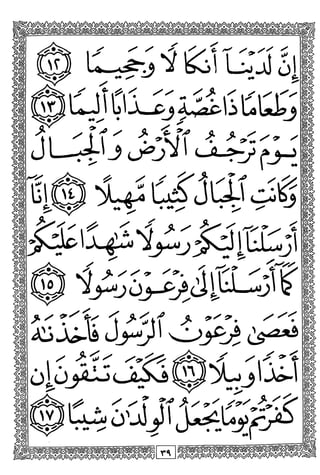 إِنَّ لَدَيْنَآ أَنكَالًا وَجَحِيمًا ١٢
وَطَعَامًا ذَا غُصَّةٍ وَعَذَابًا أَلِيمًا ١٣
يَوْمَ تَرْجُفُ الْأَرْضُ وَالْجِبَالُ
وَكَانَتِ الْجِبَالُ كَثِيبًا مَّهِيلًا ١٤ إِنَّآ
أَرْسَلْنَآ إِلَيْكُمْ رَسُولًا شَٰهِدًا عَلَيْكُمْ
كَمَآ أَرْسَلْنَآ إِلَىٰ فِرْعَوْنَ رَسُولًا ١٥
فَعَصَىٰ فِرْعَوْنُ الرَّسُولَ فَأَخَذْنَٰهُ
أَخْذًا وَبِيلًا ١٦ فَكَيْفَ تَتَّقُونَ إِن
كَفَرْتُمْ يَوْمًا يَجْعَلُ الْوِلْدَٰنَ شِيبًا ١٧
٣٩